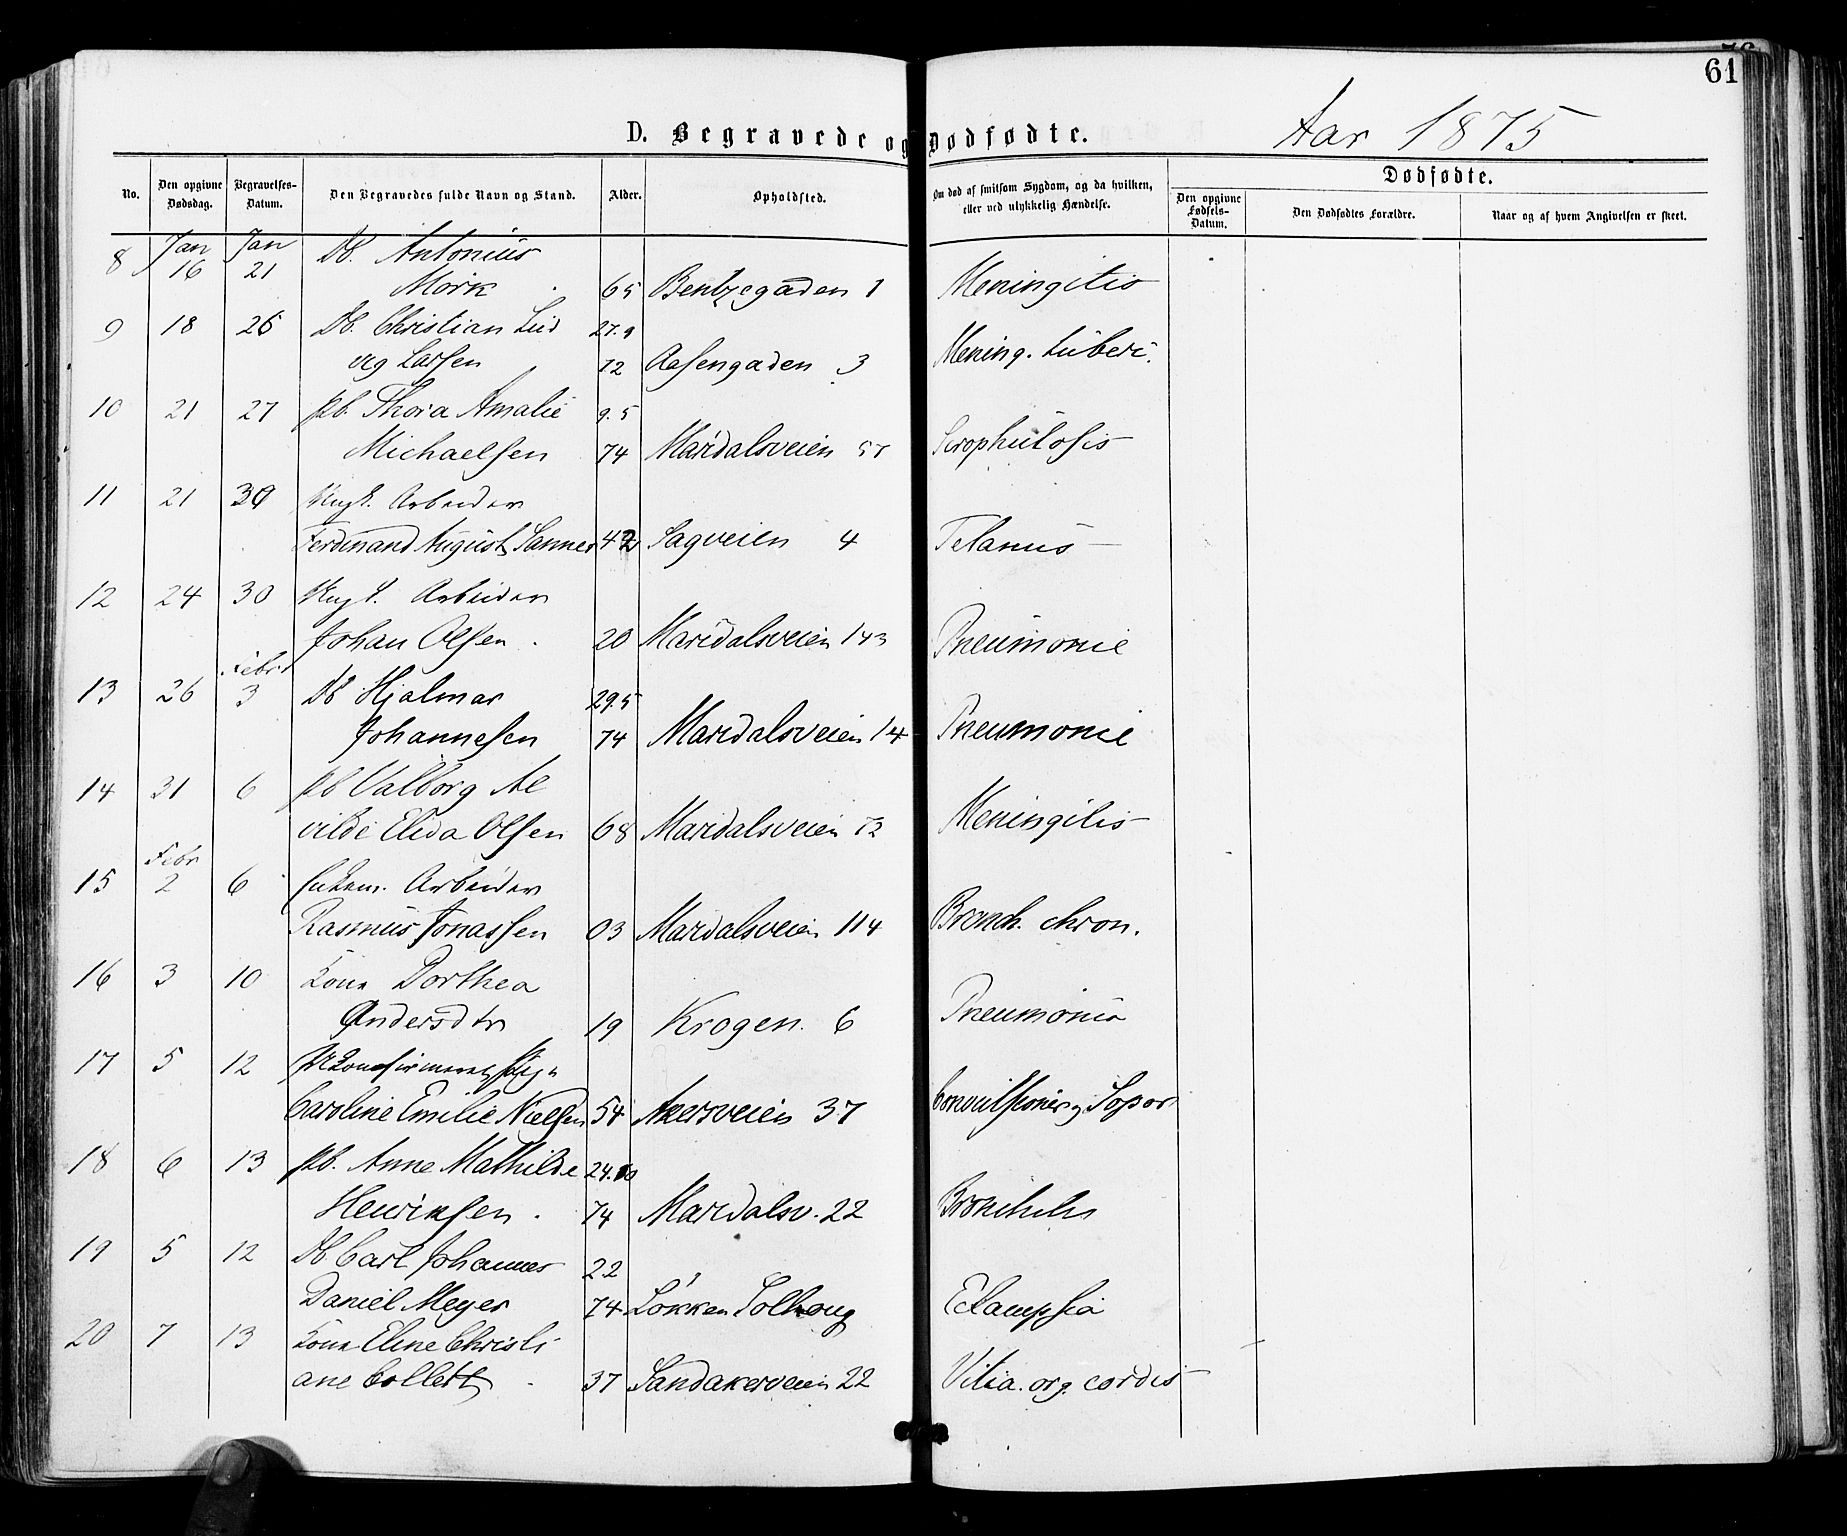 61
D. Begravede og Dødfødte.
Aar 1875
No.
Den opgivne Dødsdag.
Begravelses-Datum.
Den Begravedes fulde Navn og Stand.
Alder.
Opholdsted.
Om død af smitsom Sygdom, og da hvilken, eller ved ulykkelig Hændelse.
Dødfødte.
Den opgivne Fødsels-Datum.
Den Dødfødtes Forældre.
Naar og af hvem Angivelsen er skeet.
8 Jan 16 Jan 21 Db. Antonius
Mörk 65 Bentzegaden 1 Meningitis
9 18 26 Db. Christian Lud 27.9
vig Larsen 72 Aasengaden 3 Mening. tuberc.
10 21 27 pb. Thora Amalie 9.5
Michaelsen 74 Maridalsveien 57 Scrophulosis
11 21 30 Ungk. Arbeider
Ferdinand August Sanner 42 Sagveien 4 Tetanus
12 24 30 Ungk. Arbeider
Johan Olsen 20 Maridalsveien 143 Pneumonie
13 26 Febr 3 Db Hjalmar 29.5
Johannesen 74 Maridalsveien 14 Pneumonie
14 31 6 pb Valborg Al
vilde Elida Olsen 68 Maridalsveien 12 Meningitis
15 Febr 2 6 Enkem. Arbeider
Rasmus Jonassen 03 Maridalsveien 114 Bronch. chron.
16 3 10 Kone Dorthea
Andersdtr 19 Krogen. 6 Pneumonia
17 5 12 Ukonfirmeret Pige
Caroline Emilie Nielsen 54 Akersveien 37 Convulsioner og Sopor
18 6 13 pb. Anne Mathilde 24.10
Henriksen 74 Maridalsv. 22 Bronchitis
19 5 12 Db Carl Johannes 22
Daniel Meyer 74 Løkken Solhoug Eclampsia
20 7 13 Kone Eline Christi
ane Collett 37 Sandakerveien 22 Vitia. org. cordis